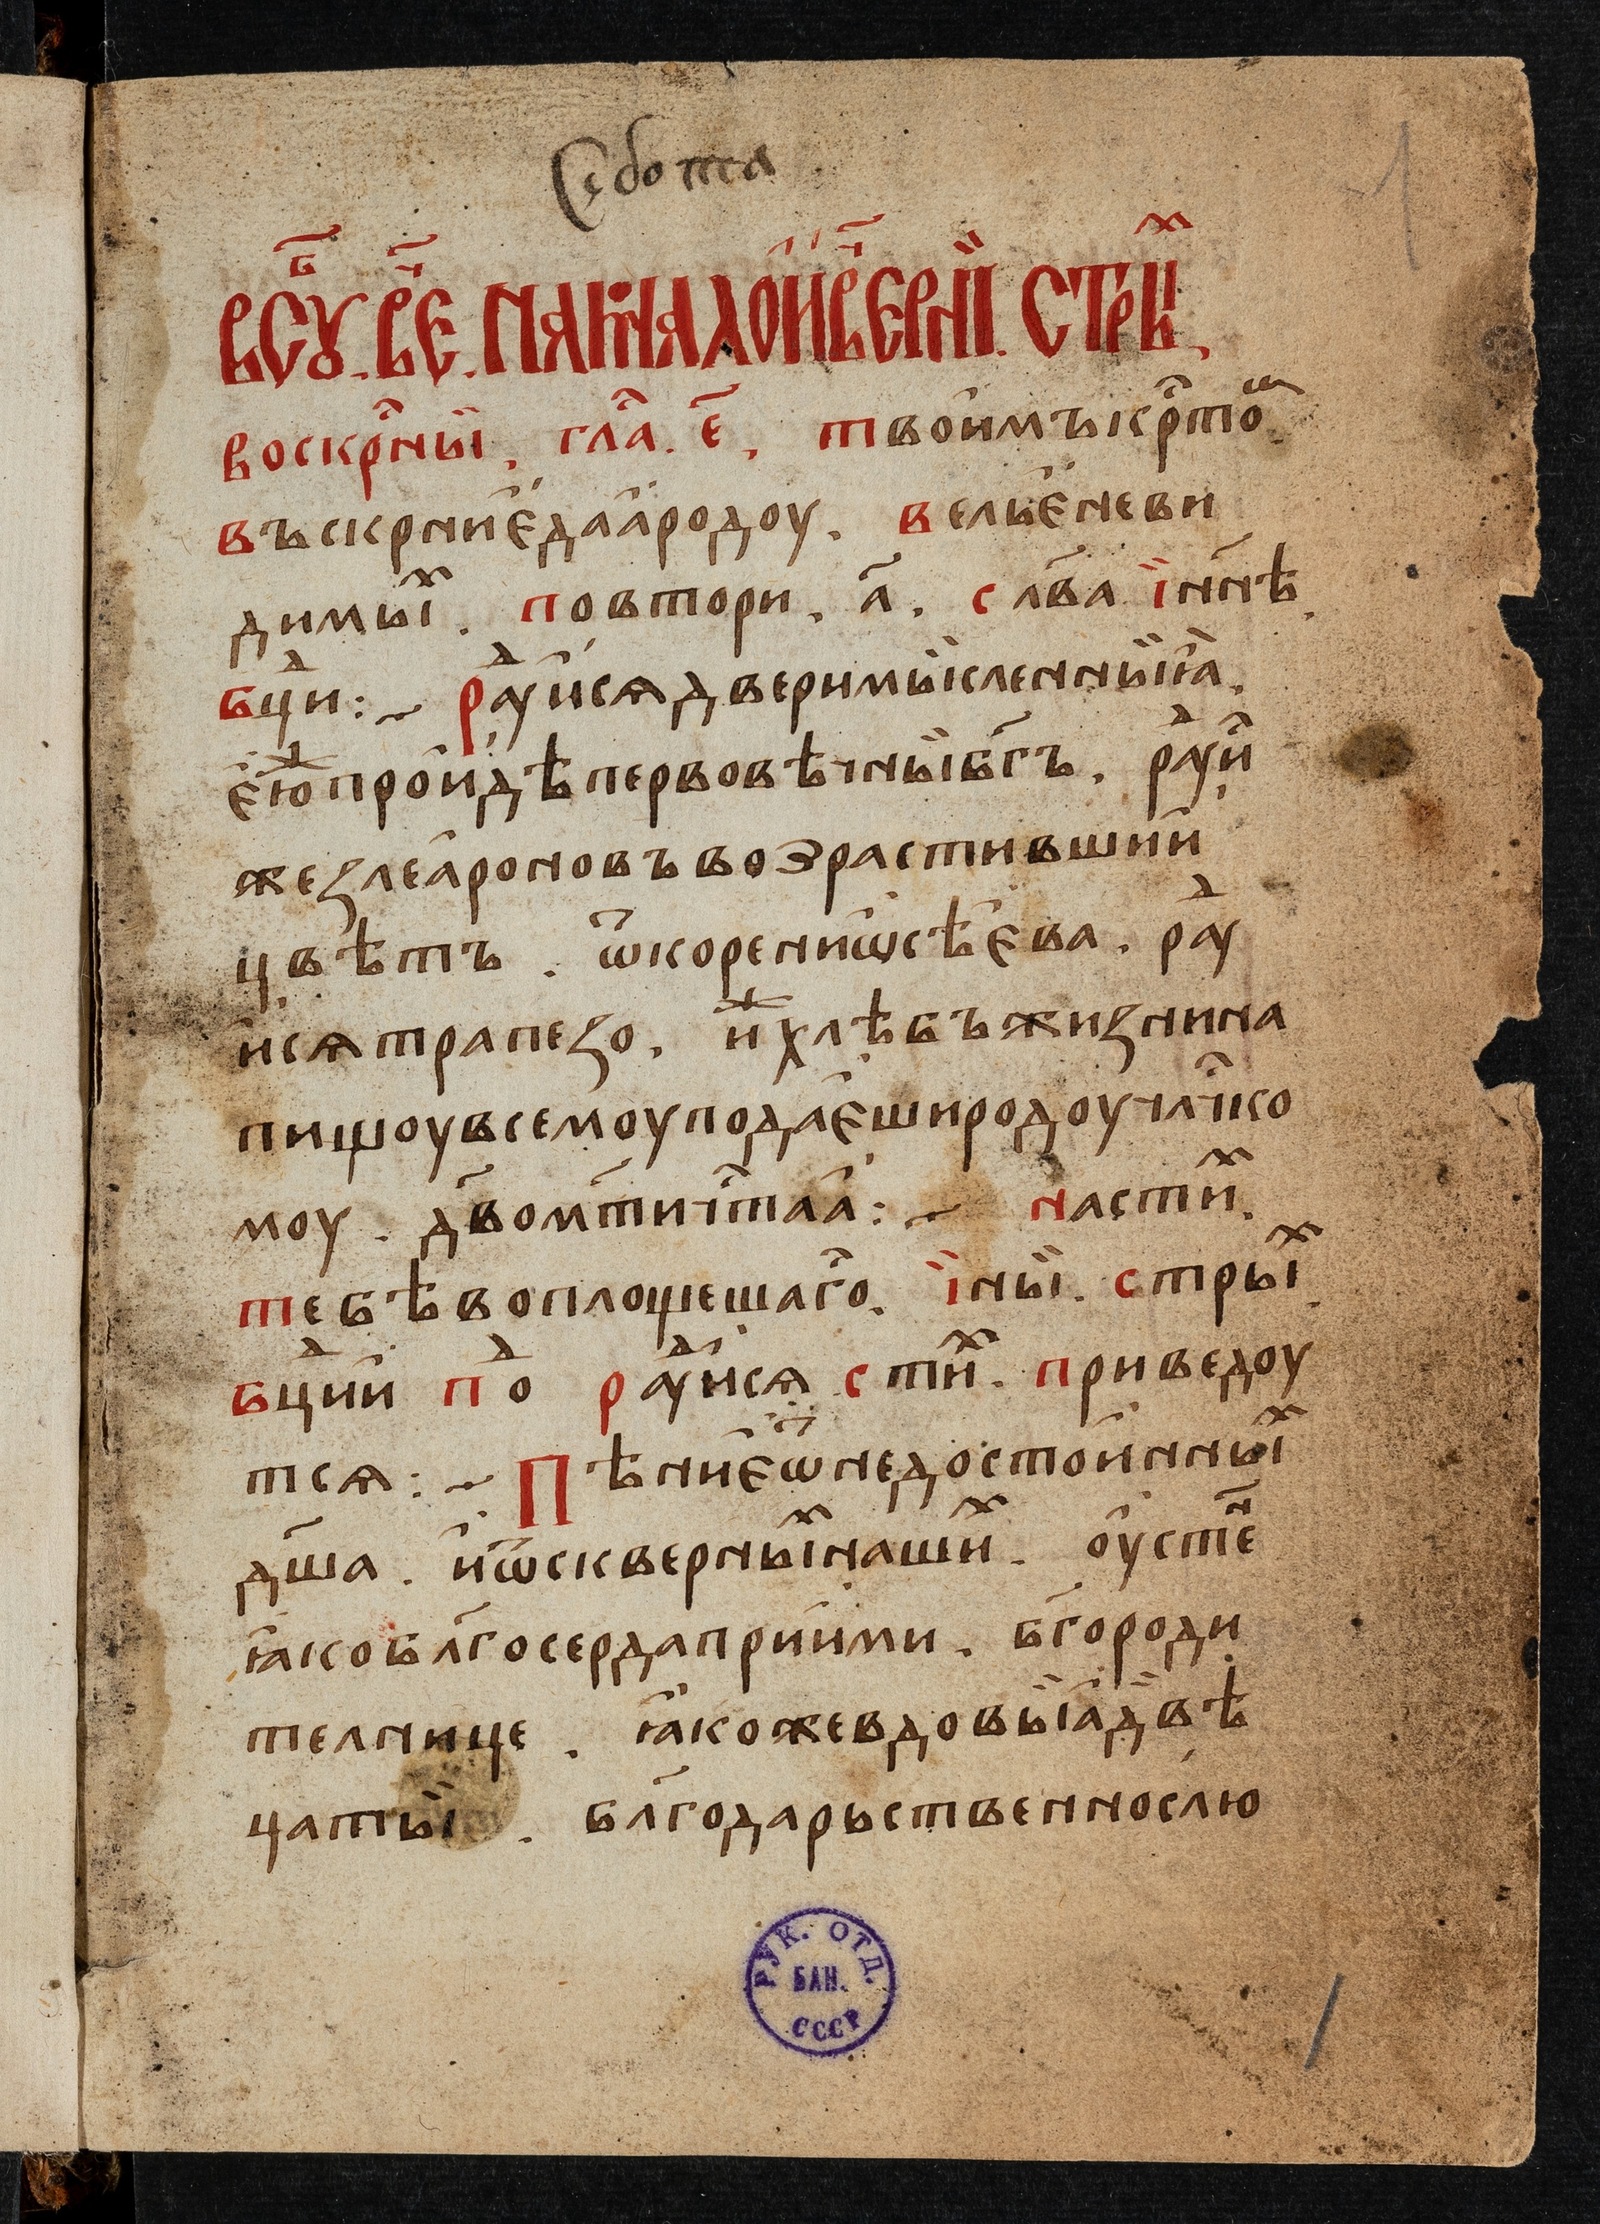 Себота
1
В сꙋⷠ҇. веⷱ҇. На малои веⷱ҇рнїи. стрⷯы,
воскрⷭ҇ныі, гла҇. е҃, твоимъ крⷭ҇то
въскрнїе даа родоу. велье неви
димыⷯі. повтори. а҃. слв҃а. і нн҃ѣ
бцⷣи: ~ раⷣуися двери мысленныіа,
еюⷤ проидѣ первовѣчныі бг҃ъ. раⷣуи
жезле ароновъ возрастившии
цвѣтъ. ѿ корени иѡсѣева. раⷣу
ися трапезо. иⷤ хлѣбъ жизни на
пищоу всемоу подаеши родоу чл҃чко
моу. дв҃о мт҃и чт҃аа: ~ на стиⷯ.
тебѣ воплощешагⷭ҇о. іныі. стрыⷯі.
бцⷣии поⷣ раⷣуися. стиⷯ. приведоу
тся: ~ Пѣние ѿ недостоинныⷯі
дш҃а. и ѿ скверныⷯі нашиⷯ. оустеⷩ҇
іако блг҃осерда приими. бг҃ороди
телнице. іакоже вдовыіа двѣ
цатыі. блг҃одарьственно слю
РУК. ОТД.
БАН.
СССР
1